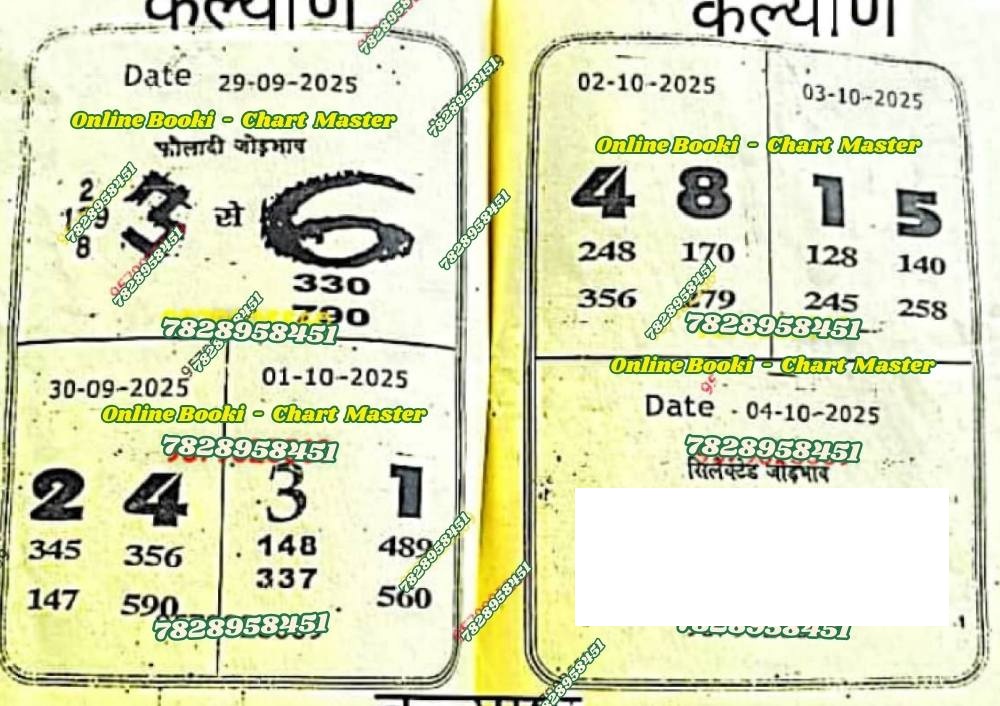 कल्याण
Date 29-09-2025
Online Booki - Chart Master
फौलादी जोड़भाव
2
8
3 से 6
330
790
7828958451
7828958451
7828958451
7828958451
7828958451
7828958451
7828958451
30-09-2025
01-10-2025
Online Booki - Chart Master
7828958451
2 4
3 1
345 356
148 489
337
147 590
560
7828958451
7828958451
7828958451
कल्याण
02-10-2025
03-10-2025
Online Booki - Chart Master
4 8
1 5
248 170
128 140
356 279
245 258
7828958451
7828958451
Online Booki - Chart Master
Date - 04-10-2025
7828958451
सिलेक्टेड जोड़भाव
7828958451
7828958451